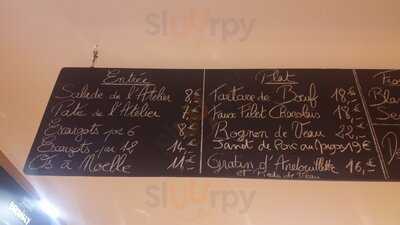 Sluurpy
Entrée
Salade de l'Atelier 8,-
Pâté de l'Atelier 7,-
Escargots par 6 8,-
Escargots par 18 14,-
Os à Moelle 11,-
Plat
Tartare de Bœuf 18,-
Faux Filet Charolais 18,-
Rognon de Veau 22,-
Jarret de Porc au 19€
Gratin d'Andouillette 16,-
et Pieds de Veau
Sluurpy